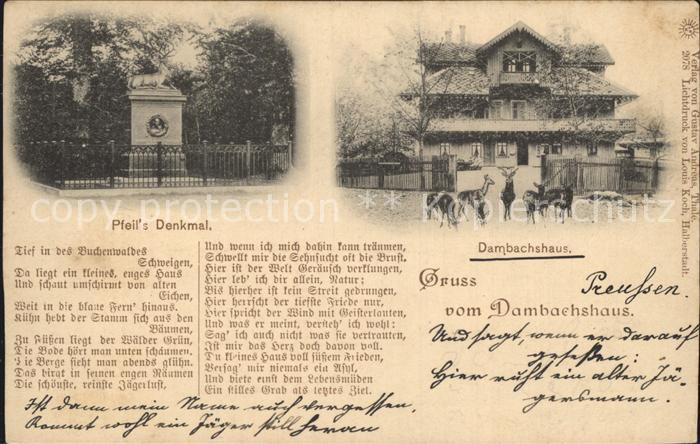 Pfeil's Denkmal.
Dambachshaus.
Tief in des Buchenwaldes
Schweigen,
Da liegt ein kleines, enges Haus
Und schaut umschirmt von alten
Eichen,
Weit in die blaue Fern' hinaus.
Kühn hebt der Stamm sich aus den
Bäumen,
Zu Füßen liegt der Wälder Grün,
Die Bode hört man unten schäumen,
Die Berge sieht man abends glühn.
Das birgt in seinen engen Räumen
Die schönste, reinste Jägerlust,
Und wenn ich mich dahin kann träumen,
Schwellt mir die Sehnsucht oft die Brust.
Hier ist der Welt Geräusch verklungen,
Hier leb' ich dir allein, Natur;
Bis hierher ist kein Streit gedrungen,
Hier herrscht der tiefste Friede nur,
Hier spricht der Wind mit Geisterlauten,
Und was er meint, versteh' ich wohl:
Sag' ich auch nicht was sie vertrauten,
Ist mir das Herz doch davon voll.
Du kleines Haus voll süßem Frieden,
Versag' mir niemals ein Asyl,
Und biete einst dem Lebensmüden
Ein stilles Grab als letztes Ziel.
Gruss
vom Dambachshaus.
Preussen.
Und sagt, wenn er darauf
gesessen:
Hier ruht ein alter Jä-
gersmann.
Ist dann mein Name auch vergessen,
Kommt wohl ein Jäger still heran
Verlag von Gustav Ahrens, Thale.
2978 Lichtdruck von Louis Koch, Halberstadt.
copyright